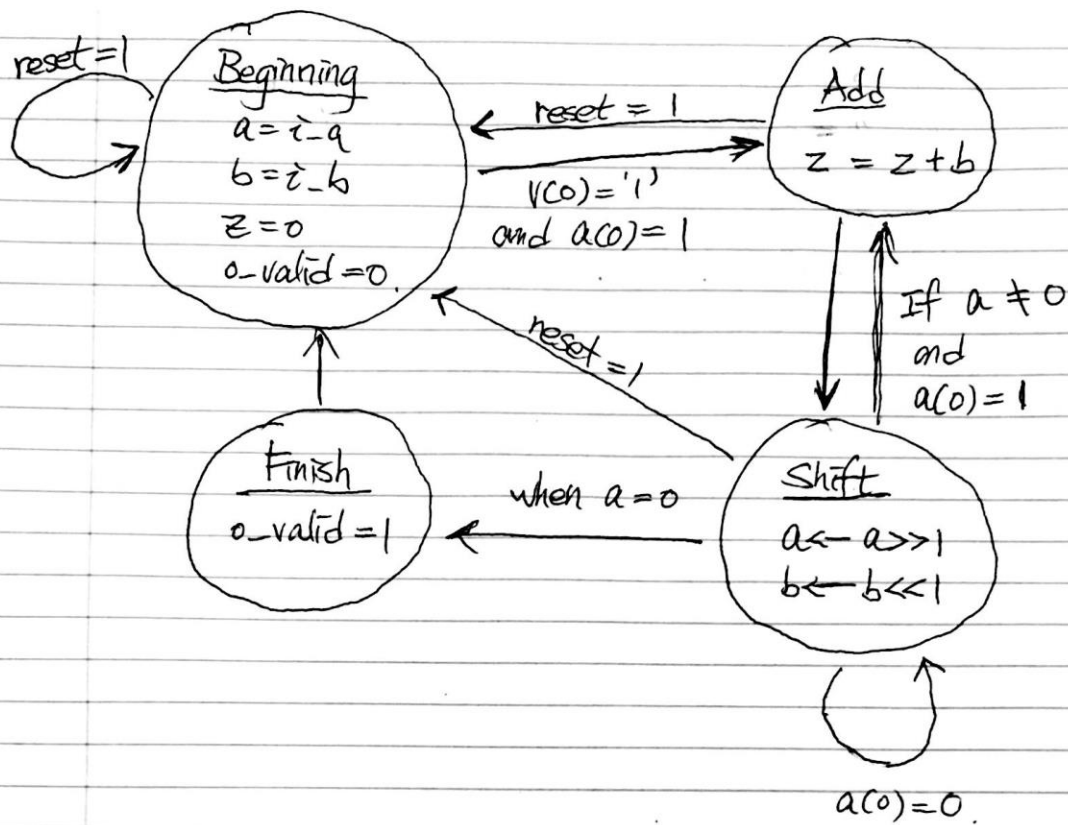 reset=1
Beginning
a=i_a
b=i_b
z=0
o_valid=0.
reset = 1
V(0)='1'
and a(0)=1
Add
z = z+b
If a ≠ 0
and
a(0)=1
reset=1
Finish
o_valid=1
when a=0
Shift
a← a>>1
b← b<<1
a(0)=0.